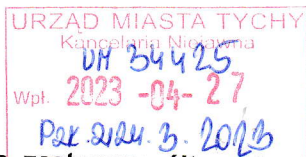 URZĄD MIASTA TYCHY
Kancelaria Niejawna
UM 34425
Wpł. 2023 -04- 27
3. 2023